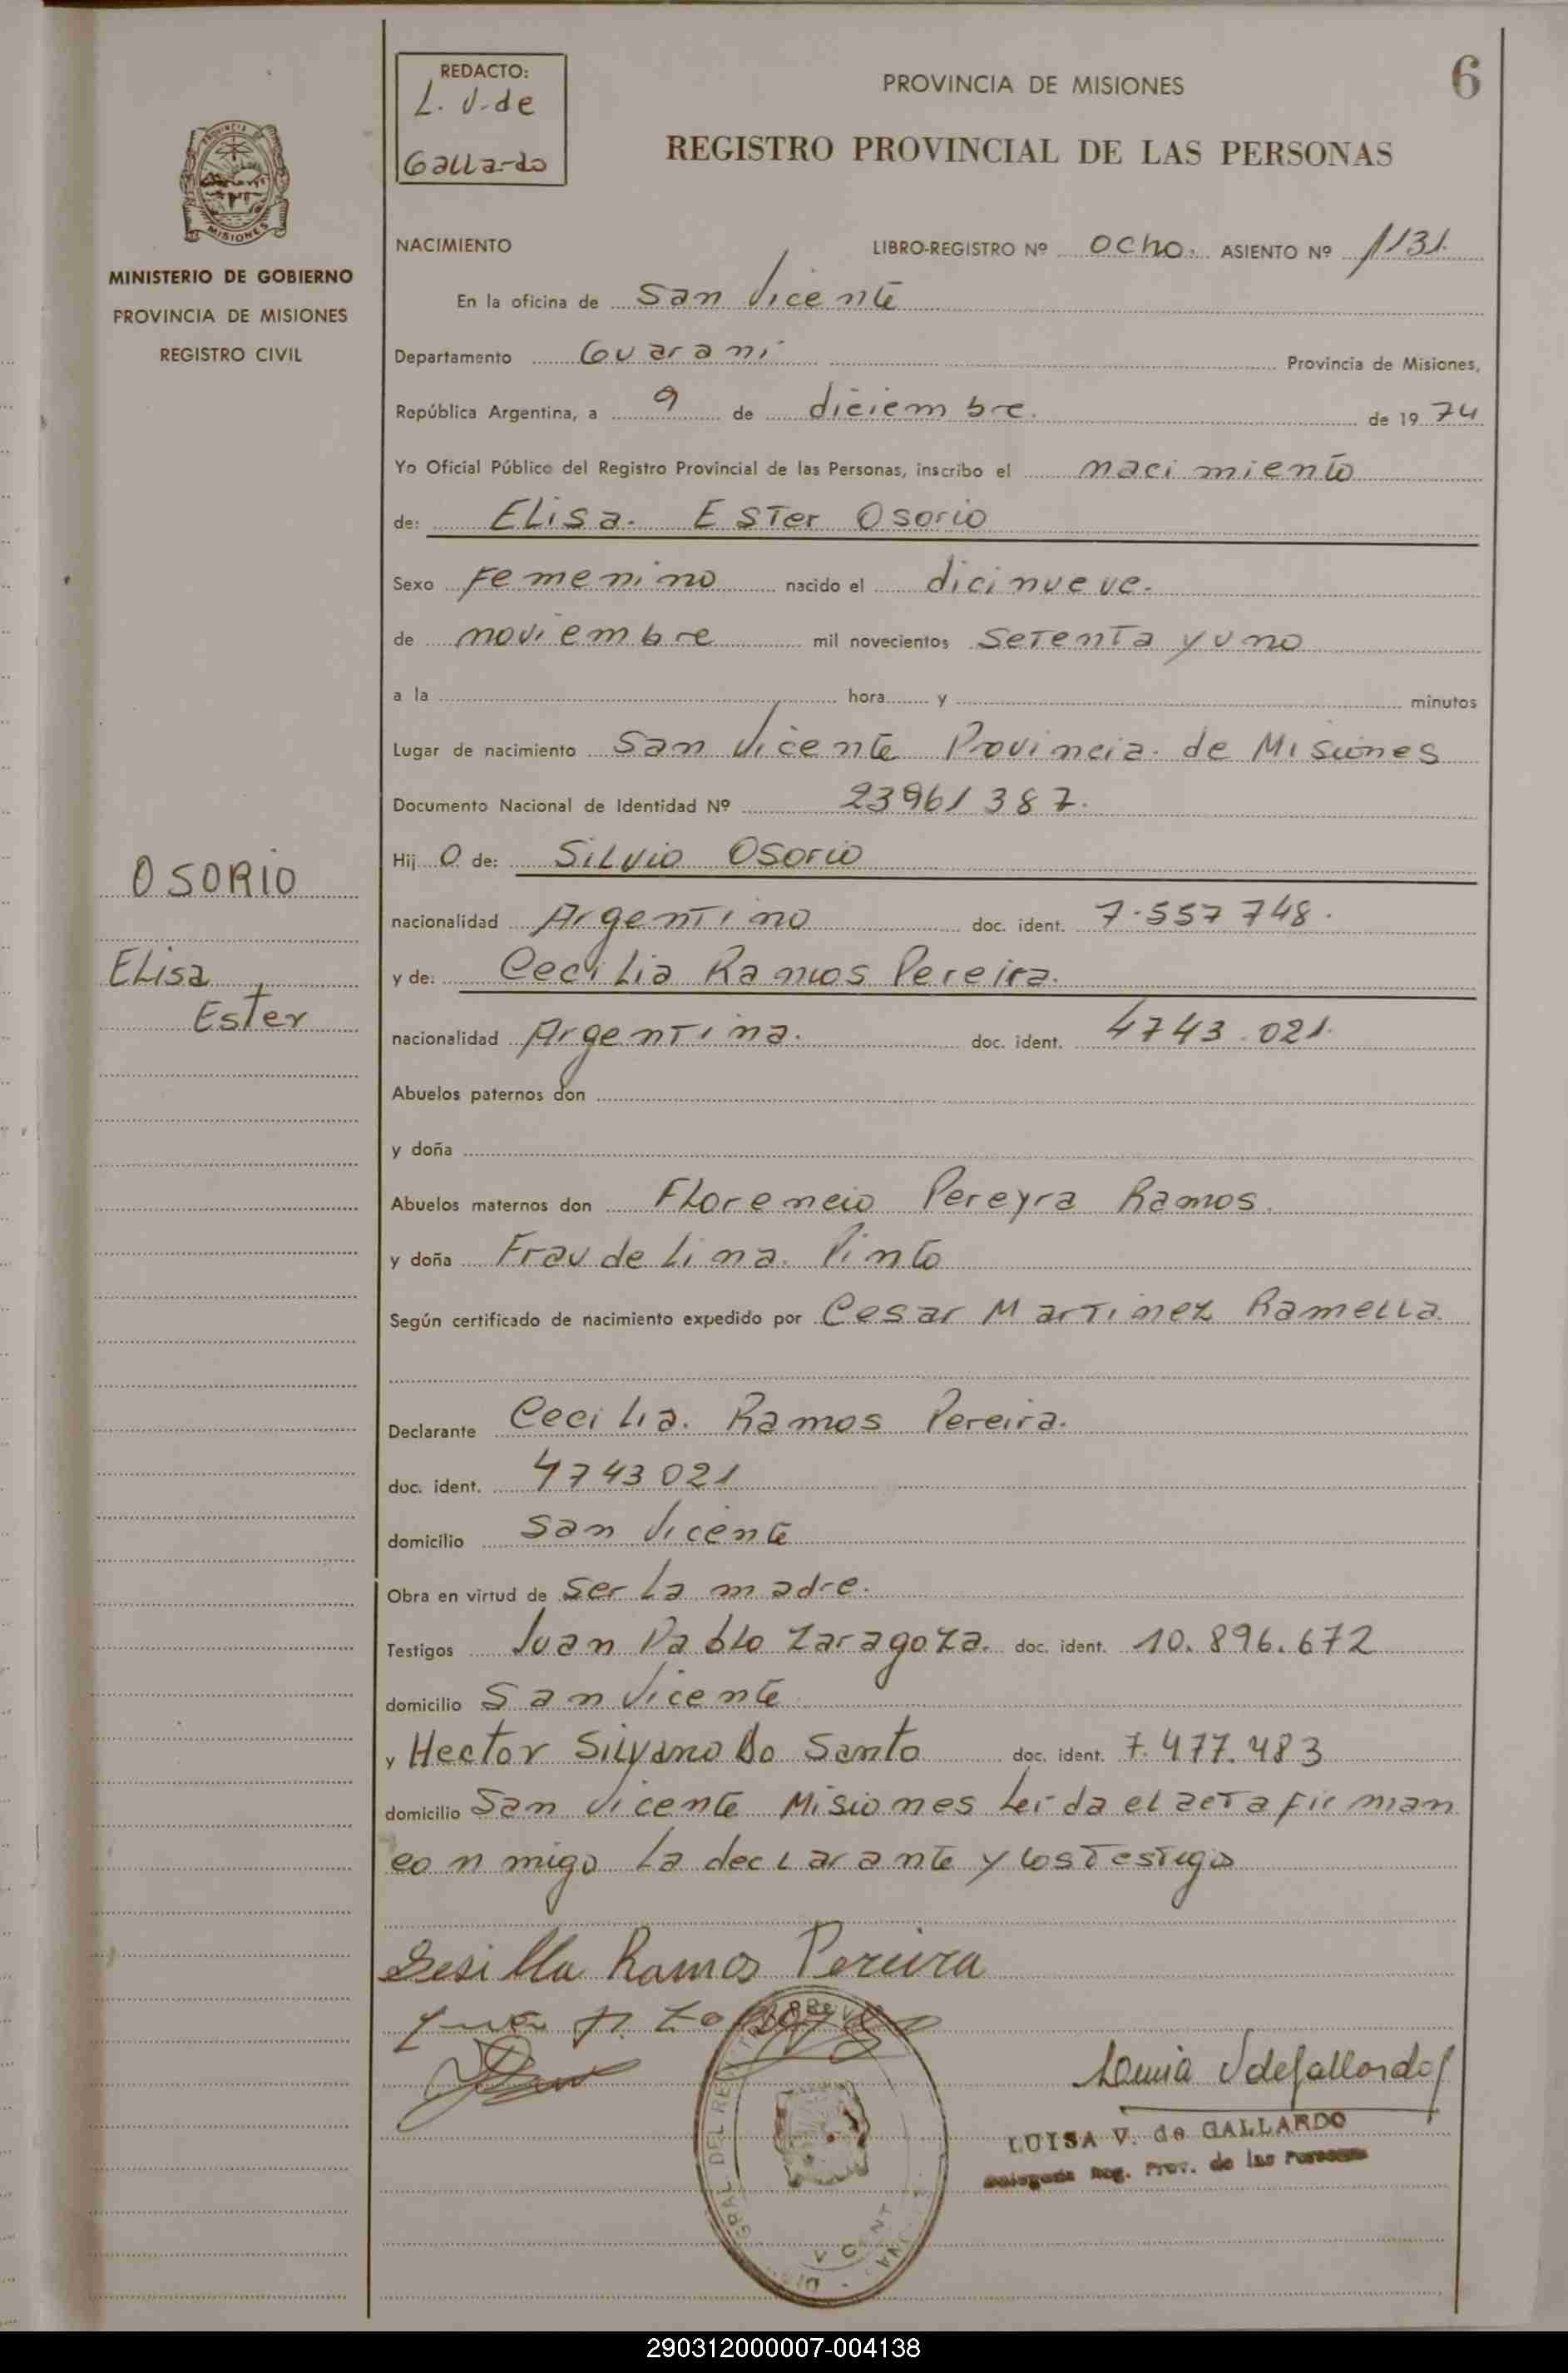 REDACTO:
L. V. de
Gallardo
PROVINCIA DE MISIONES
6
REGISTRO PROVINCIAL DE LAS PERSONAS
MISIONES
MINISTERIO DE GOBIERNO
PROVINCIA DE MISIONES
REGISTRO CIVIL
NACIMIENTO LIBRO-REGISTRO Nº ocho. ASIENTO Nº 1131.
En la oficina de San Vicente
Departamento Guarani Provincia de Misiones,
República Argentina, a 9 de diciembre. de 1974
Yo Oficial Público del Registro Provincial de las Personas, inscribo el nacimiento
de: Elisa. Ester Osorio
Sexo Femenino nacido el dicinueve.
de noviembre mil novecientos setenta y uno
a la hora y minutos
Lugar de nacimiento San Vicente Provincia. de Misiones
Documento Nacional de Identidad Nº 23961387.
Hij o de: Silvio Osorio
nacionalidad Argentino doc. ident. 7.557748.
y de: Cecilia Ramos Pereira.
nacionalidad Argentina. doc. ident. 4743.021.
OSORIO
Elisa
Ester
Abuelos paternos don
y doña
Abuelos maternos don Florencio Pereyra Ramos.
y doña Fraudelina. Pinto
Según certificado de nacimiento expedido por Cesar Martinez Ramella.
Declarante Cecilia. Ramos Pereira.
doc. ident. 4743021
domicilio San Vicente
Obra en virtud de ser la madre.
Testigos Juan Pablo Zaragoza. doc. ident. 10.896.672
domicilio San Vicente
y Hector Silvano Do Santo doc. ident. 7.477.483
domicilio San Vicente Misiones Leida el acta firman
con migo la declarante y los testigos
Sesilla Ramos Pereira
LUISA V. de GALLARDO
Delegada Reg. Prov. de las Personas
290312000007-004138